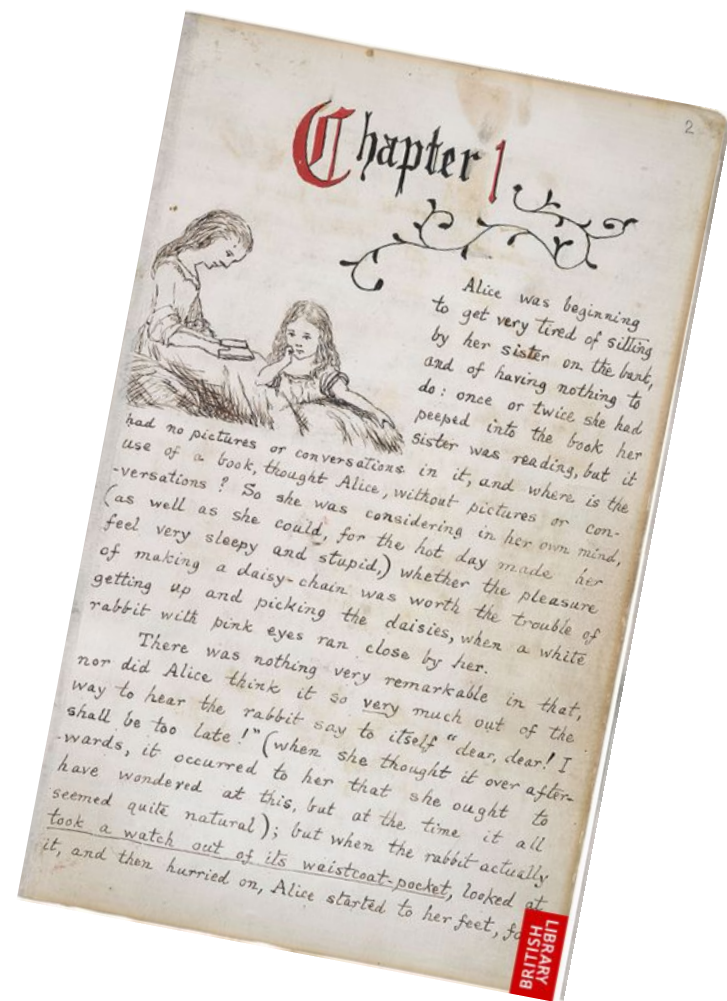 2
Chapter 1
Alice was beginning
to get very tired of sitting
by her sister on the bank,
and of having nothing to
do: once or twice she had
peeped into the book her
sister was reading, but it
had no pictures or conversations in it, and where is the
use of a book, thought Alice, without pictures or con-
-versations? So she was considering in her own mind,
(as well as she could, for the hot day made her
feel very sleepy and stupid,) whether the pleasure
of making a daisy-chain was worth the trouble of
getting up and picking the daisies, when a white
rabbit with pink eyes ran close by her.
There was nothing very remarkable in that,
nor did Alice think it so very much out of the
way to hear the rabbit say to itself "dear, dear! I
shall be too late!" (when she thought it over after-
-wards, it occurred to her that she ought to
have wondered at this, but at the time it all
seemed quite natural); but when the rabbit actually
took a watch out of its waistcoat-pocket, looked at
it, and then hurried on, Alice started to her feet,
BRITISH
LIBRARY